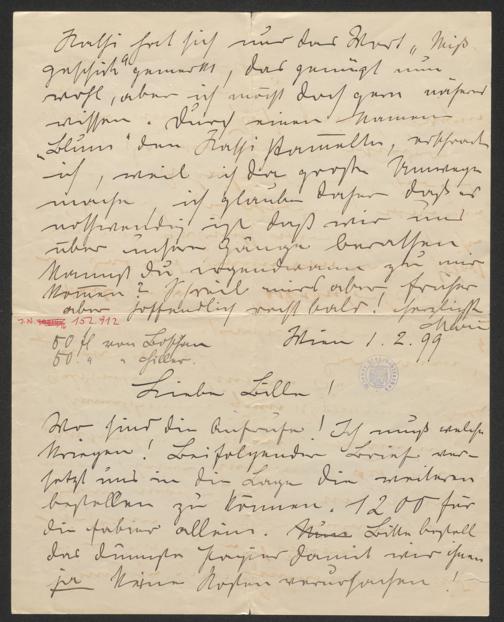 Kathi hat sich nur das Wort „Miß-
geschick" gemerkt, das genügt nun
wohl, aber ich möcht doch gern näheres
wissen. Durch einen Namen
„Blum" den Kathi stammelte, erschrack
ich, weil ich dir große Umwege
mache ich glaube daher daß es
nothwendig ist daß wir uns
über unsere Gänge berathen
Kannst du irgendwann zu mir
kommen? viel aber früher
aber hoffentlich recht bald! herzlichst
J.N. 152.912
50 fl von
50 " "
Wien 1.2.99
Liebe Bille!
Wo sind die Aufrufe! Ich muß welche
kriegen! Beifolgender Brief ver-
setzt uns in die Lage die weiteren
bestellen zu können. 1200 für
die allein. Bitte bestell
das dünnste Papier damit wir ihnen
ja keine Kosten verursachen!